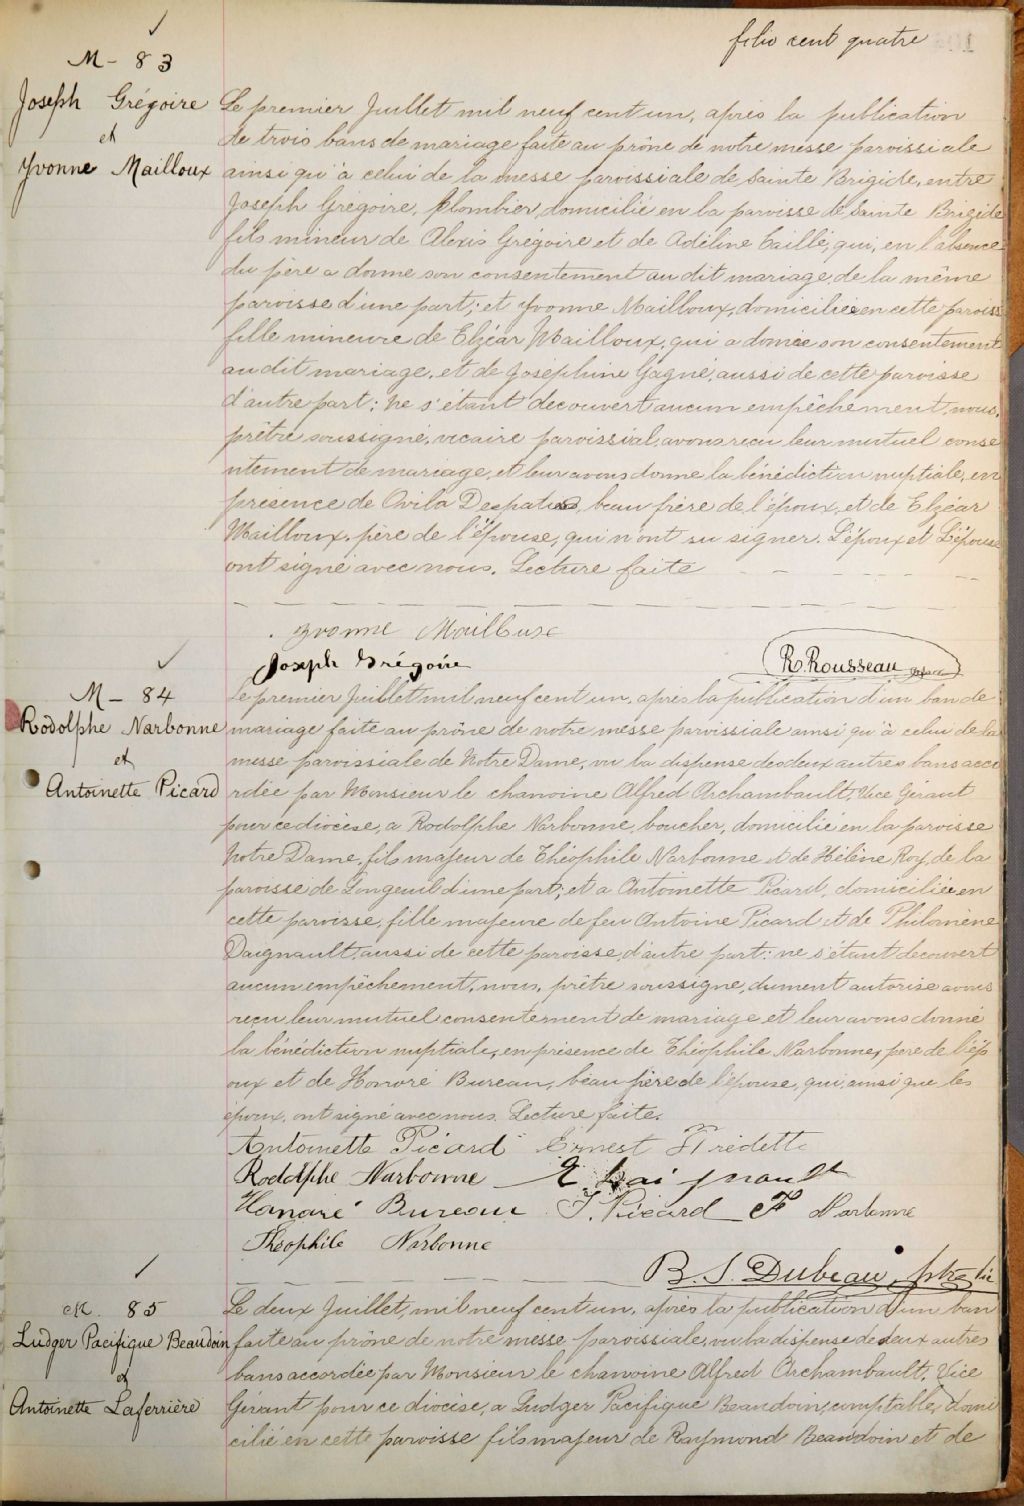 folio cent quatre
M - 83
Joseph Grégoire
et
Yvonne Mailloux
Le premier Juillet mil neuf cent un, après la publication
de trois bans de mariage faite au prône de notre messe paroissiale
ainsi qu'à celui de la messe paroissiale de Sainte Brigide, entre
Joseph Grégoire, plombier, domicilié en la paroisse de Sainte Brigide
fils mineur de Alexis Grégoire et de Adéline Caillé, qui, en l'absence
du père a donné son consentement au dit mariage, de la même
paroisse d'une part; et Yvonne Mailloux, domiciliée en cette paroiss
fille mineure de Elzéar Mailloux, qui a donné son consentement
au dit mariage, et de Joséphine Gagné, aussi de cette paroisse
d'autre part; ne s'étant découvert aucun empêchement, nous,
prêtre soussigné, vicaire paroissial, avons reçu leur mutuel conse
ntement de mariage, et leur avons donné la bénédiction nuptiale, en
présence de Ovila Despatis, beau frère de l'époux, et de Elzéar
Mailloux, père de l'épouse, qui n'ont su signer. L'époux et L'épouse
ont signé avec nous. Lecture faite
Yvonne Mailloux
Joseph Grégoire
R. Rousseau
M - 84
Rodolphe Narbonne
et
Antoinette Picard
Le premier Juillet mil neuf cent un, après la publication d'un ban de
mariage faite au prône de notre messe paroissiale ainsi qu'à celui de la
messe paroissiale de Notre Dame, vu la dispense de deux autres bans acco
rdée par Monsieur le chanoine Alfred Archambault, Vice Gérant
pour ce diocèse, a Rodolphe Narbonne, boucher, domicilié en la paroisse
Notre Dame, fils majeur de Théophile Narbonne et de Hélène Roy, de la
paroisse de Longeuil d'une part; et a Antoinette Picard, domiciliée en
cette paroisse, fille majeure de feu Antoine Picard et de Philomène
Daignault, aussi de cette paroisse, d'autre part; ne s'étant découvert
aucun empêchement, nous, prêtre soussigné, dument autorisé avons
reçu leur mutuel consentement de mariage et leur avons donné
la bénédiction nuptiale, en présence de Théophile Narbonne, père de l'ép
oux et de Honoré Bureau, beau frère de l'épouse, qui, ainsi que les
époux, ont signé avec nous. Lecture faite.
Antoinette Picard Ernest Frédette
Rodolphe Narbonne E. Daignault
Honoré Bureau J. Picard F Narbonne
Théophile Narbonne
B. J. Dubeau, ptre vic
M. 85
Ludger Pacifique Beaudoin
et
Antoinette Laferrière
Le deux Juillet, mil neuf cent un, après la publication d'un ban
faite au prône de notre messe paroissiale, vu la dispense de deux autres
bans accordée par Monsieur le chanoine Alfred Archambault, Vice
Gérant pour ce diocèse, a Ludger Pacifique Beaudoin, comptable, domi
cilié en cette paroisse fils majeur de Raymond Beaudoin et de